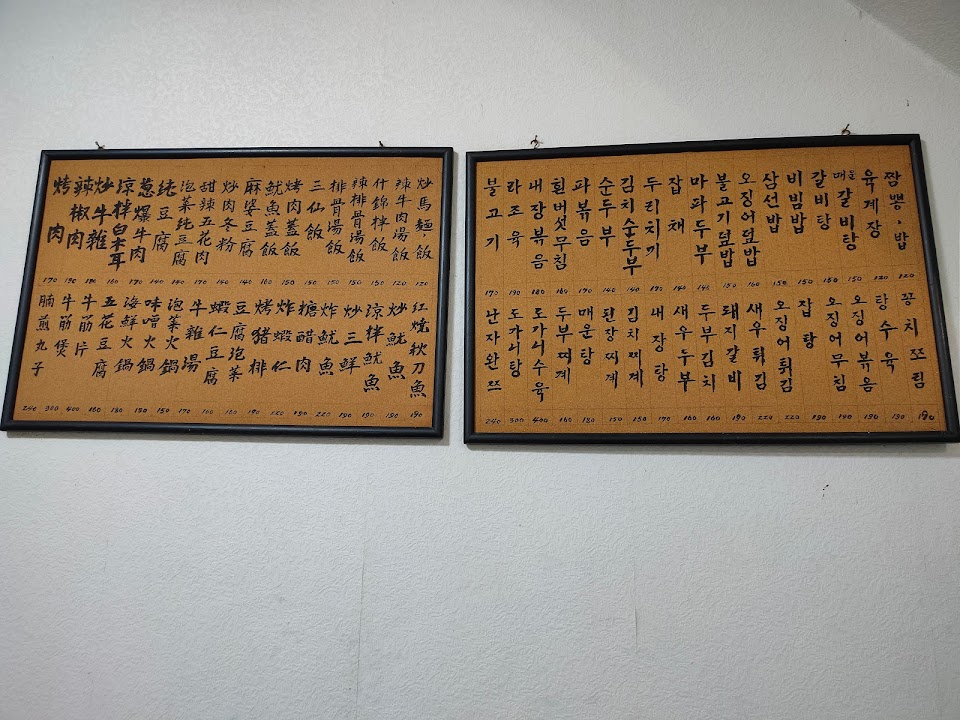 炒馬麵·飯 120
辣牛肉湯飯 120
什錦拌飯 150
辣排骨湯飯 150
排骨湯飯 150
三仙飯 150
烤肉蓋飯 160
魷魚蓋飯 150
麻婆豆腐 140
炒肉冬粉 140
甜辣五花肉
泡菜純豆腐 140
純豆腐 140
蔥爆牛肉 170
涼拌白木耳 160
炒牛雜 180
辣椒肉 190
烤肉 170
紅燒秋刀魚 190
炒魷魚 190
涼拌魷魚 190
炒三鮮 190
炸魷魚 220
糖醋肉 190
炸蝦仁 220
烤豬排 190
豆腐泡菜 160
蝦仁豆腐 160
牛雜湯 170
泡菜火鍋 150
味噌火鍋 150
海鮮火鍋 180
五花豆腐 160
牛筋片 400
牛筋煲 300
腩煎丸子 240
짬뽕·밥 120
육계장 120
매운갈비탕 150
갈비탕 150
비빔밥 150
삼선밥 150
오징어덮밥 160
불고기덮밥 150
마파두부 140
잡채 140
두리치기
김치순두부 140
순두부 140
파볶음 170
흰버섯무침 160
내장볶음 180
라조육 190
불고기 170
꽁치쪼림 190
탕수육 190
오징어볶음 190
오징어무침 190
잡탕 190
오징어튀김 220
새우튀김 220
돼지갈비 190
두부김치 160
새우두부 160
내장탕 170
김치찌게 150
된장찌게 150
매운탕 180
두부찌게 160
도가니수육 400
도가니탕 300
난자완쯔 240